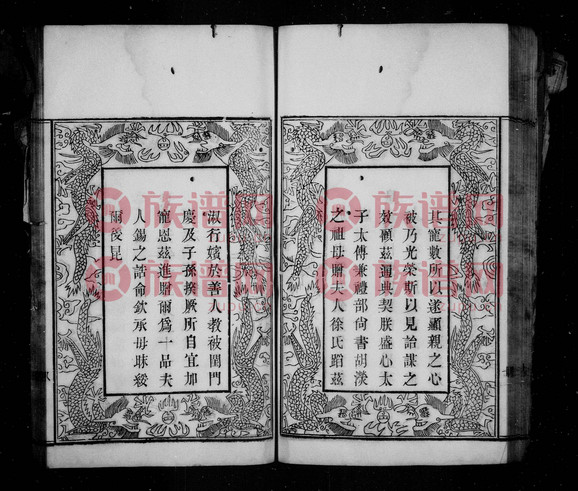 其寵數所以遂顯親之心
被乃光榮斯以見詒謀之
效顧茲渥典契朕盛心太
子太傅兼禮部尚書胡濙
之祖母贈夫人徐氏蹈茲
淑行嬪於善人教被閨門
慶及子孫揆厥所自宜加
寵恩茲進贈爾爲一品夫
人錫之誥命欽承毋昧裕
爾後昆
族谱网
族谱网
族谱网
族谱网